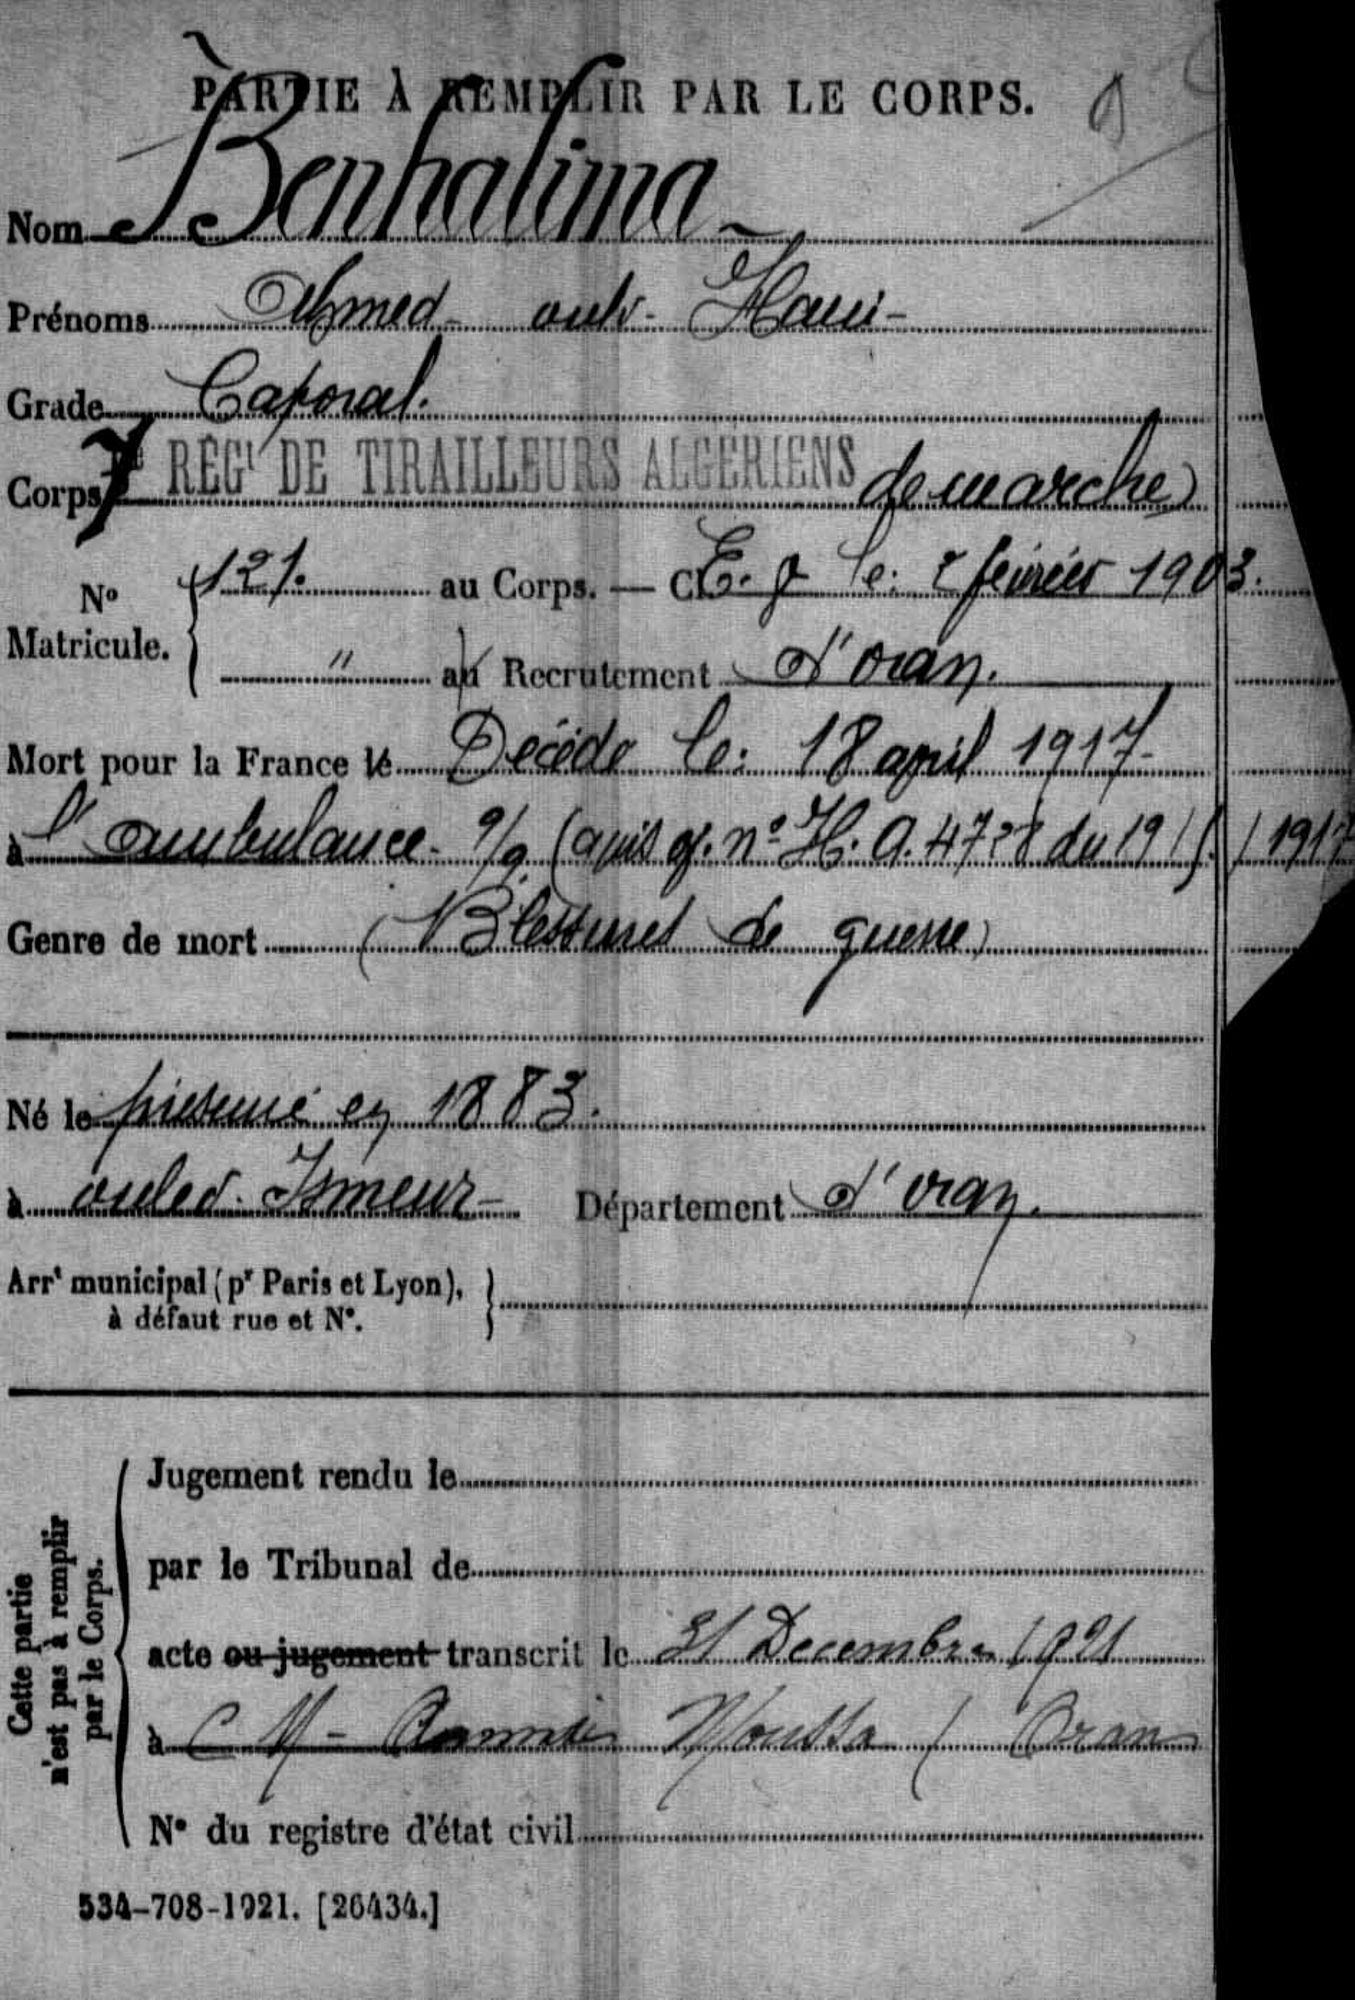 PARTIE À REMPLIR PAR LE CORPS.
Nom Benhalima
Prénoms Ahmed ould Haui
Grade Caporal.
Corps 7e RÉGt DE TIRAILLEURS ALGERIENS de marche
No Matricule. { 121. au Corps. — Cl. E. V le: 2 février 1903.
" au Recrutement d'oran.
Mort pour la France le Décédé le: 18 april 1917
à l'ambulance 9/9 (avis of. no H. A. 4728 du 19/5/1917
Genre de mort (Blessures de guerre)
Né le présumé en 1883.
à ouled Ismeur Département d'oran.
Arrt municipal (pr Paris et Lyon), à défaut rue et N°.
Cette partie n'est pas à remplir par le Corps.
Jugement rendu le
par le Tribunal de
acte ou jugement transcrit le 31 Decembre 1921
à C M Moussa (Oran
N° du registre d'état civil
534-708-1921. [26434.]